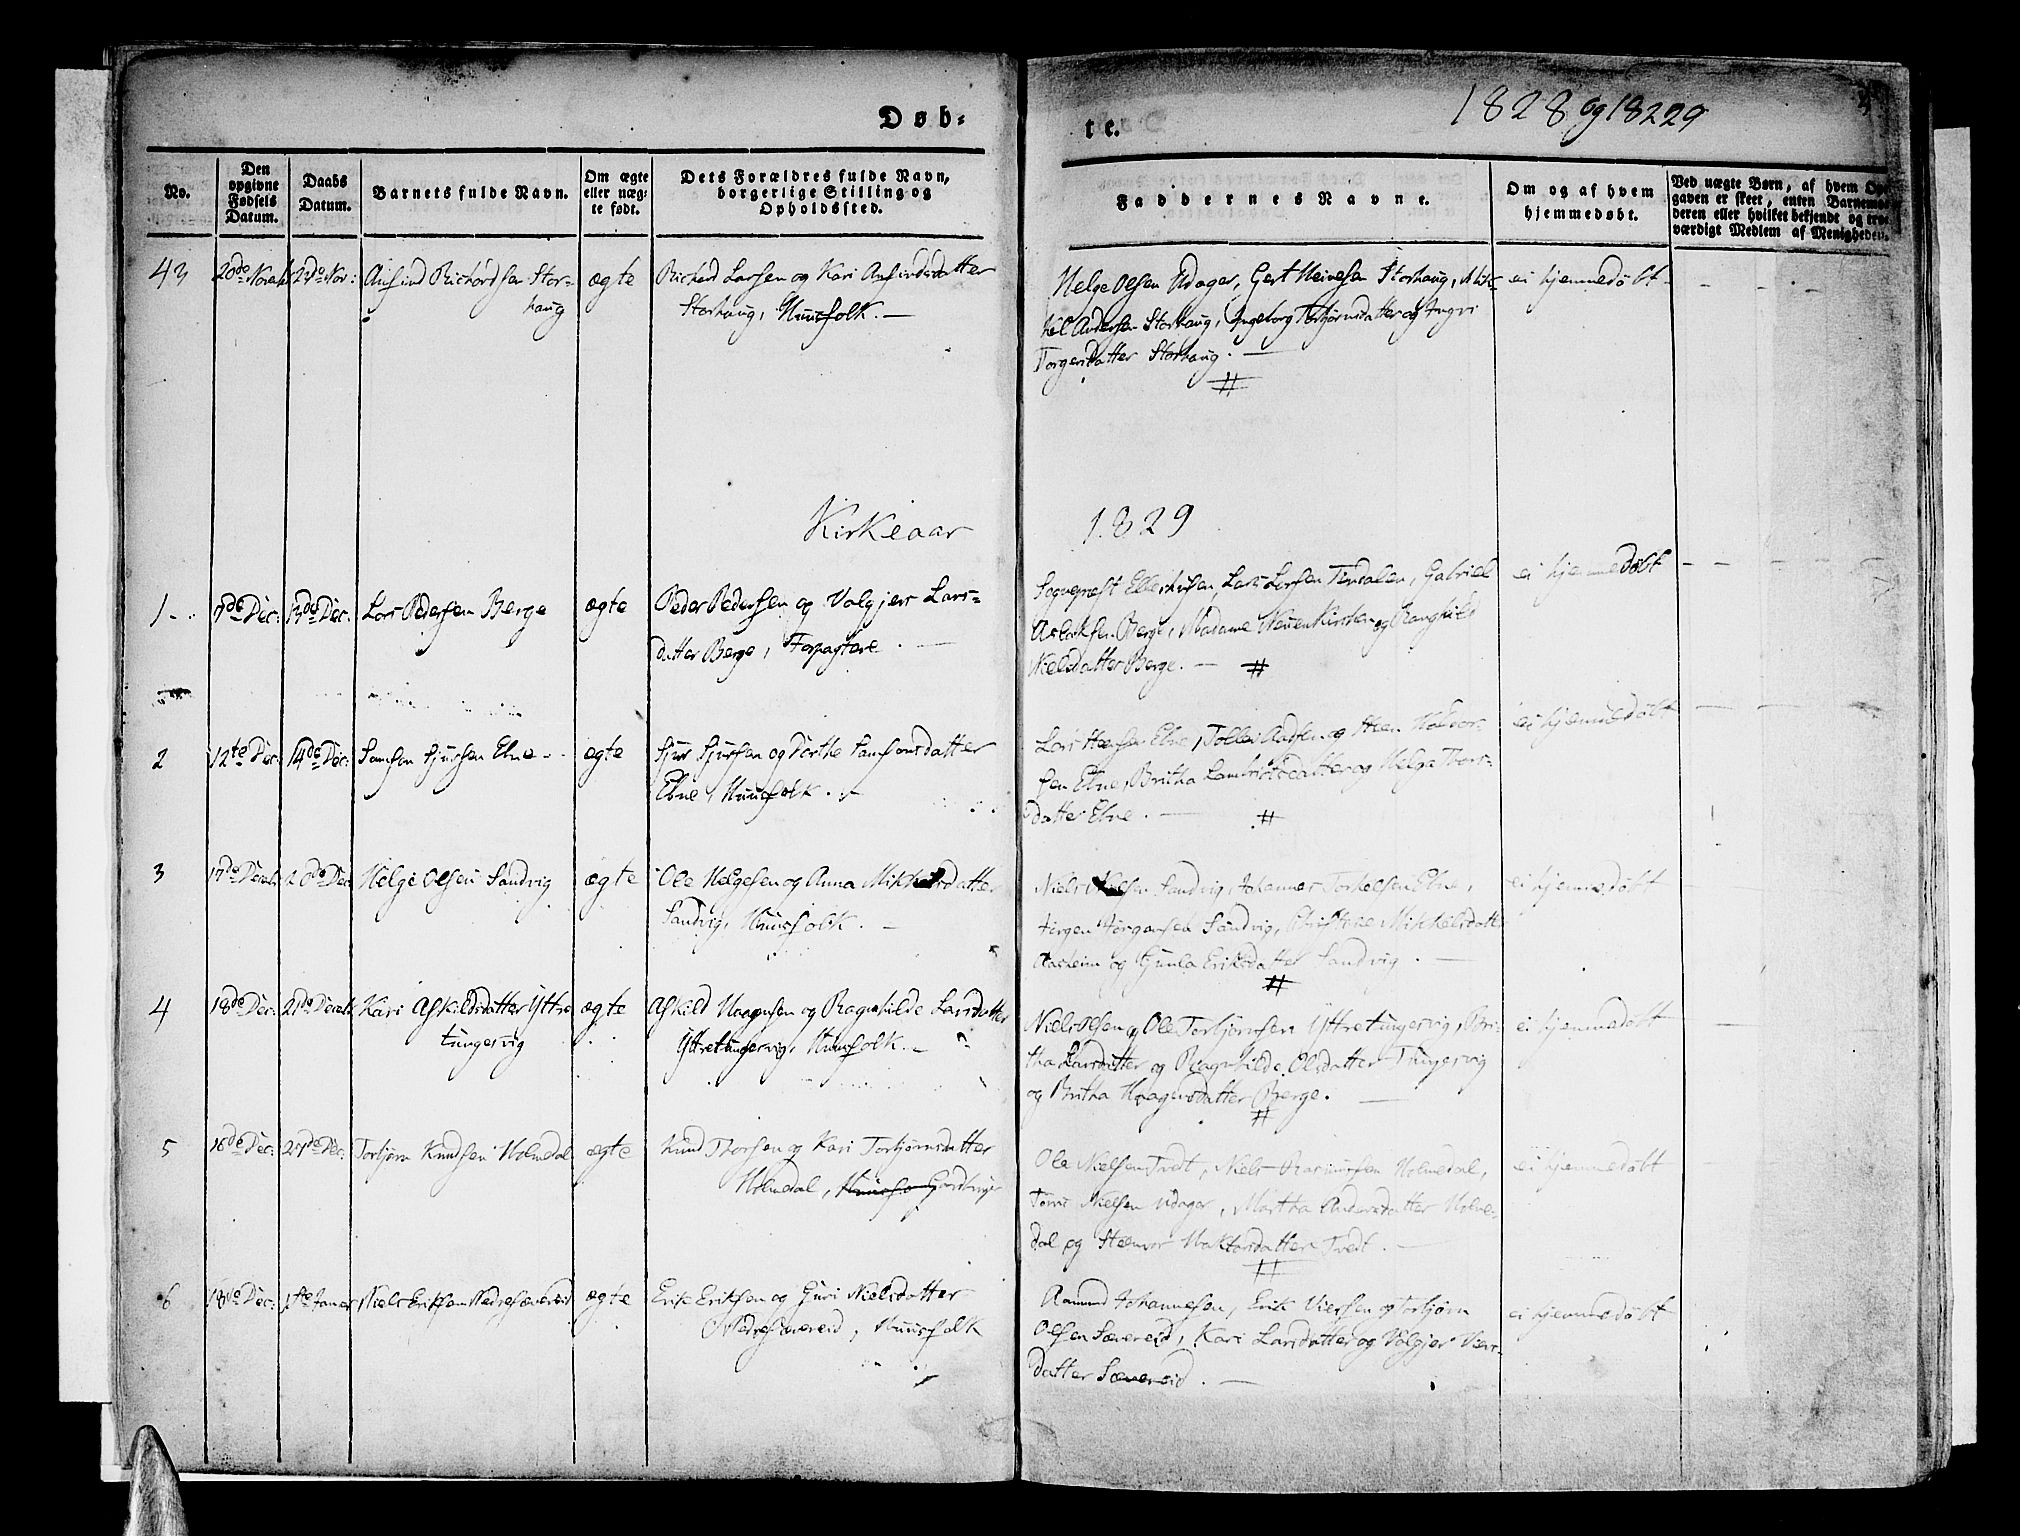 Døb-
te.
1828 og 18229
No.
Den
opgivne
Fødsels
Datum.
Daabs
Datum.
Barnets fulde Navn.
Om ægte
eller uæg-
te født.
Dets Forældres fulde Navn,
borgerlige Stilling og
Opholdssted.
Faddernes Navne.
Om og af hvem
hjemmedøbt.
Ved uægte Børn, af hvem Op-
gaven er skeet, enten Barnemo-
deren eller hvilket bekjendt og tro-
værdigt Medlem af Menigheden.
43
20de Novemb
23de Nov:
Ansind Richordsen Stor-
haug
ægte
Richord Larsen og Kari Ansindsdatter
Storhaug, Huusfolk. —
Helge Olsen Udager, Gert Heinesen Storhaug, Mik-
kel Andersen Storhaug, Ingeborg Torbjørnsdatter og Ingri
Torgersdatter Storhaug. —
ei hjemmedøbt
Kirkeaar
1829
1
7de Dec:
13de Dec:
Lars Pedersen Berge
ægte
Peder Pedersen og Valgjer Lars-
datter Berge, Forpagtere. —
Sognepræst Ellertsen, Lars Larsen Tendalen, Gabriel
Aslaksen Berge, Madame Kirsten og Ranghild
Nielsdatter Berge. —
ei hjemmedøbt
2
12te Dec:
14de Dec:
Samsen Sjursen Ebne
ægte
Sjur Sjursen og Dorthe Samsonsdatter
Ebne, Huusfolk.
Lars Ebne, og Steen Halvor-
sen Ebne, Britha Lambrigtsdatter og Helga Thors-
datter Ebne. —
ei hjemmedøbt
3
17de Decemb
20de Dec
Helge Olsen Sandvig
ægte
Ole Helgesen og Anna Mikkelsdatter
Sandvig, Huusfolk. —
Niels Sandvig, Johannes Torkelsen Ebne,
Jørgen Jørgensen Sandvig, Christine Mikkelsdatter
Aasheim og Gunla Eriksdatter Sandvig. —
ei hjemmedøbt
4
18de Dec:
21de Decemb
Kari Askildsdatter Yttre
tungesvig
ægte
Askild Haagensen og Ragnhilde Larsdatter
Yttretungesvig, Huusfolk. —
Niels Olsen og Ole Torbjørnsen Yttretungesvig, Bri-
tha Larsdatter og Ragnhilde Olsdatter Tungesvig
og Britha Haagensdatter Berge. —
ei hjemmedøbt
5
18de Dec:
27de Dec:
Torbjørn Knudsen Holmedal
ægte
Knud Thorsen og Kari Torbjørnsdatter
Holmedal, Huusfo Gaardbruger
Ole Nielsen Tvedt, Niels Rasmussen Holmedal,
Tørris Nielsen Udager, Martha Andersdatter Holme-
dal og Steenvor Tvedt. —
ei hjemmedøbt
6
18de Dec:
1ste Januar
Niels Eriksen Nedresævereid
ægte
Erik Eriksen og Guri Nielsdatter
Nedresævereid, Huusfolk
Aamund Johannesen, Erik Viersen og Torbjørn
Olsen Sævereid, Kari Larsdatter og Valgjer Viers-
datter Sævereid. —
ei hjemmedøbt